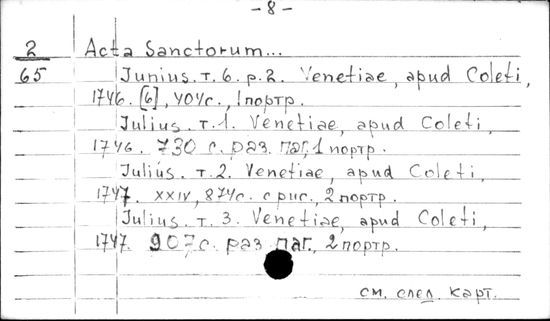 - 8 -
2 Acta Sanctorum...
65 Junius. т. 6. p. 2. Venetiae, apud Coleti,
1746. [6], 404с., 1 портр.
Julius. т. 1. Venetiae, apud Coleti,
1746. 730 с. раз. паг, 1 портр.
Julius. т. 2. Venetiae, apud Coleti,
1747. XXIV, 874с. с рис., 2 портр.
Julius. т. 3. Venetiae, apud Coleti,
1747. 907 с. раз. паг., 2 портр.
см. след. карт.